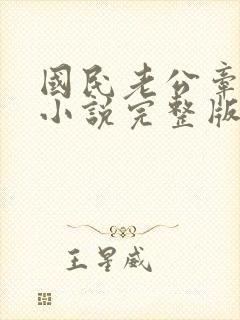 國民老公章
小說完整版
王星威